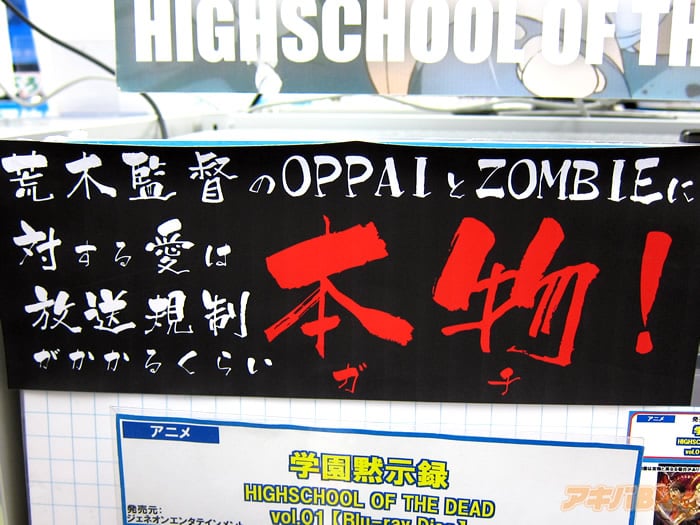 HIGHSCHOOL OF TH
荒木監督のOPPAIとZOMBIEに
対する愛は
放送規制
がかかるくらい
本物!
ガチ
アニメ
学園黙示録
HIGHSCHOOL OF THE DEAD
vol.01【Blu-ray Disc】
発売元:
ジェネオンエンタテインメント
アニメ
HIGHSCHOOL
vol.0
アキバB